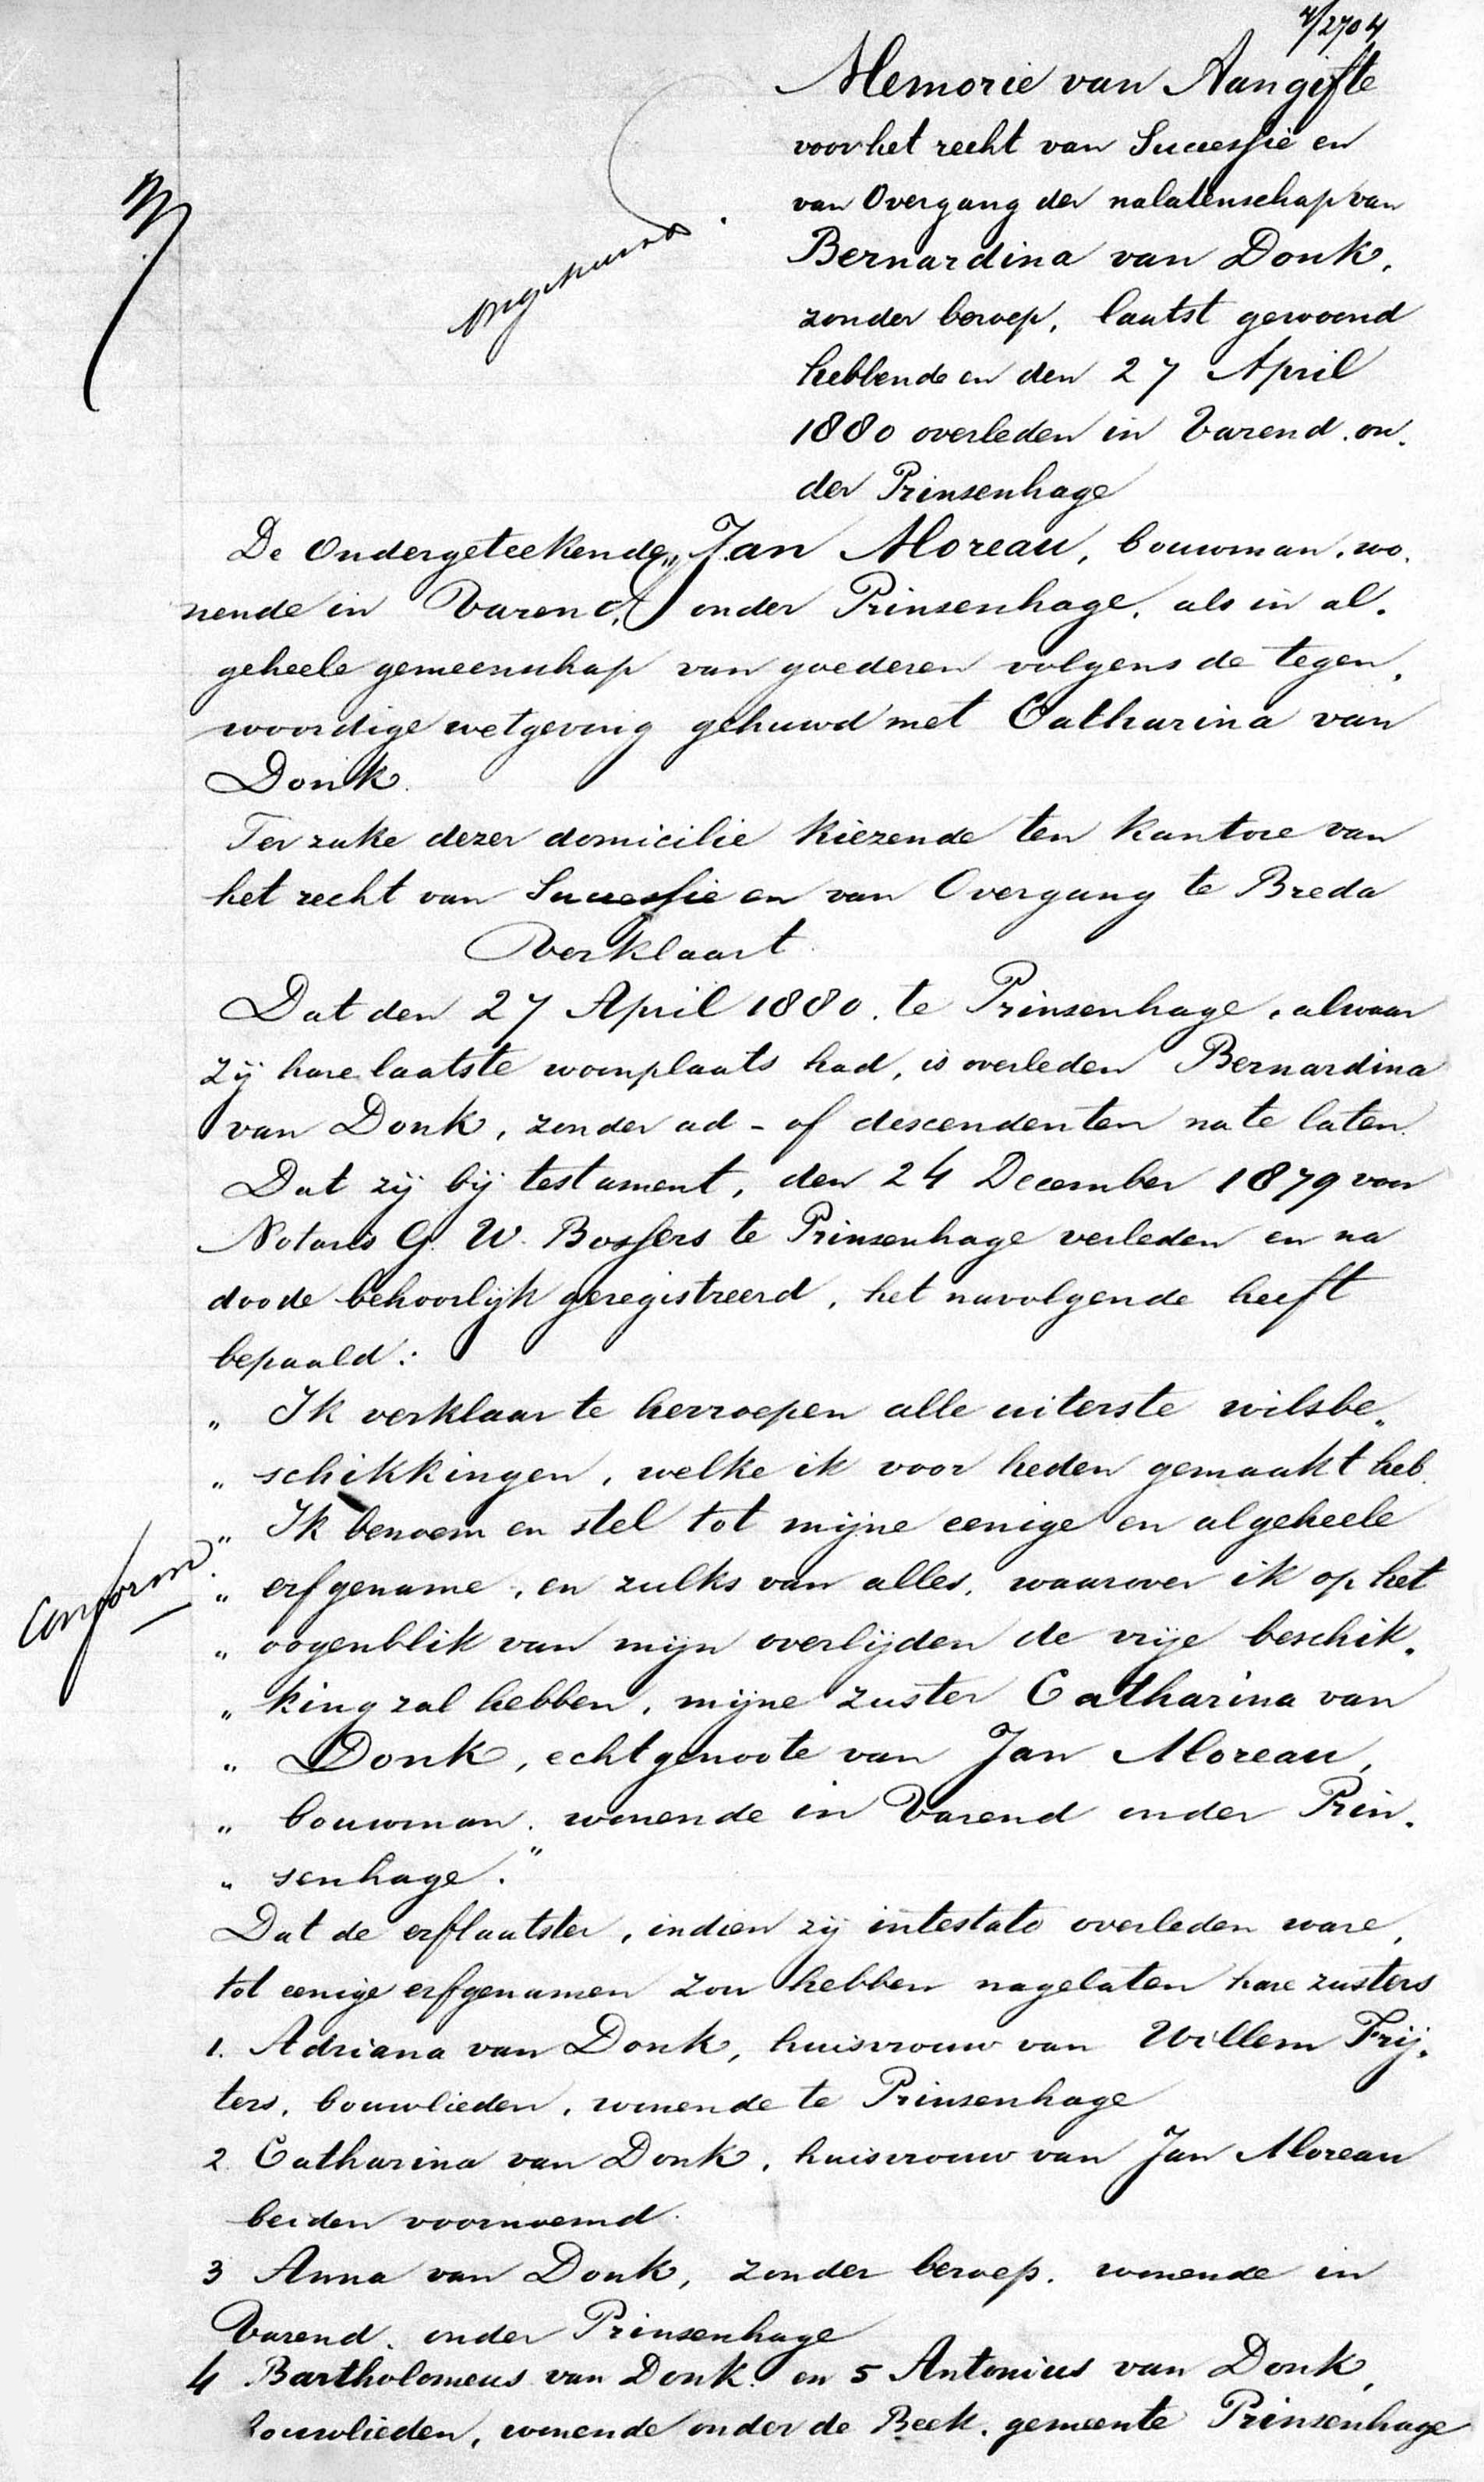 4/2704
Memorie van Aangifte
voor het recht van Successie en
van Overgang der nalatenschap van
Bernardina van Donk,
zonder beroep, laatst gewoond
hebbende en den 27 April
1880 overleden in Varend. on.
der Prinsenhage
De Ondergeteekende, Jan Moreau, bouwman, wo.
nende in Varend, onder Prinsenhage, als in al.
geheele gemeenschap van goederen volgens de tegen.
woordige wetgeving gehuwd met Catharina van
Donk.
Ter zake dezer domicilie kiezende ten kantore van
het recht van Successie en van Overgang te Breda
Verklaart
Dat den 27 April 1880. te Prinsenhage, alwaar
zij hare laatste woonplaats had, is overleden Bernardina
van Donk, zonder ad - of descendenten na te laten.
Dat zij bij testament, den 24 December 1879 voor
Notaris G. W. Bossers te Prinsenhage verleden en na
doode behoorlijk geregistreerd, het navolgende heeft
bepaald:
" Ik verklaar te herroepen alle uiterste wilsbe„
" schikkingen, welke ik voor heden gemaakt heb.
" Ik benoem en stel tot mijne eenige en algeheele
Conform
" erfgename, en zulks van alles, waarover ik op het
" oogenblik van mijn overlijden de vrije beschik.
" king zal hebben, mijne zuster Catharina van
" Donk, echtgenoote van Jan Moreau,
" bouwman, wonende in Varend onder Prin.
" senhage."
Dat de erflaatster, indien zij intestato overleden ware,
tot eenige erfgenamen zou hebben nagelaten hare zusters
1. Adriana van Donk, huisvrouw van Willem Frij.
ters, bouwlieden, wonende te Prinsenhage
2. Catharina van Donk, huisvrouw van Jan Moreau
beiden voornoemd.
3 Anna van Donk, zonder beroep, wonende in
Varend, onder Prinsenhage
4 Bartholomeus van Donk en 5 Antonius van Donk,
bouwlieden, wonende onder de Beek, gemeente Prinsenhage